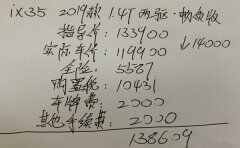 ix35 2019款 1.4T 两驱·
指导价: 133900
实际车价: 119900 ↓14000
全险: 5587
购置税: 10431
车牌费: 2000
其他手续费: 2000
138609